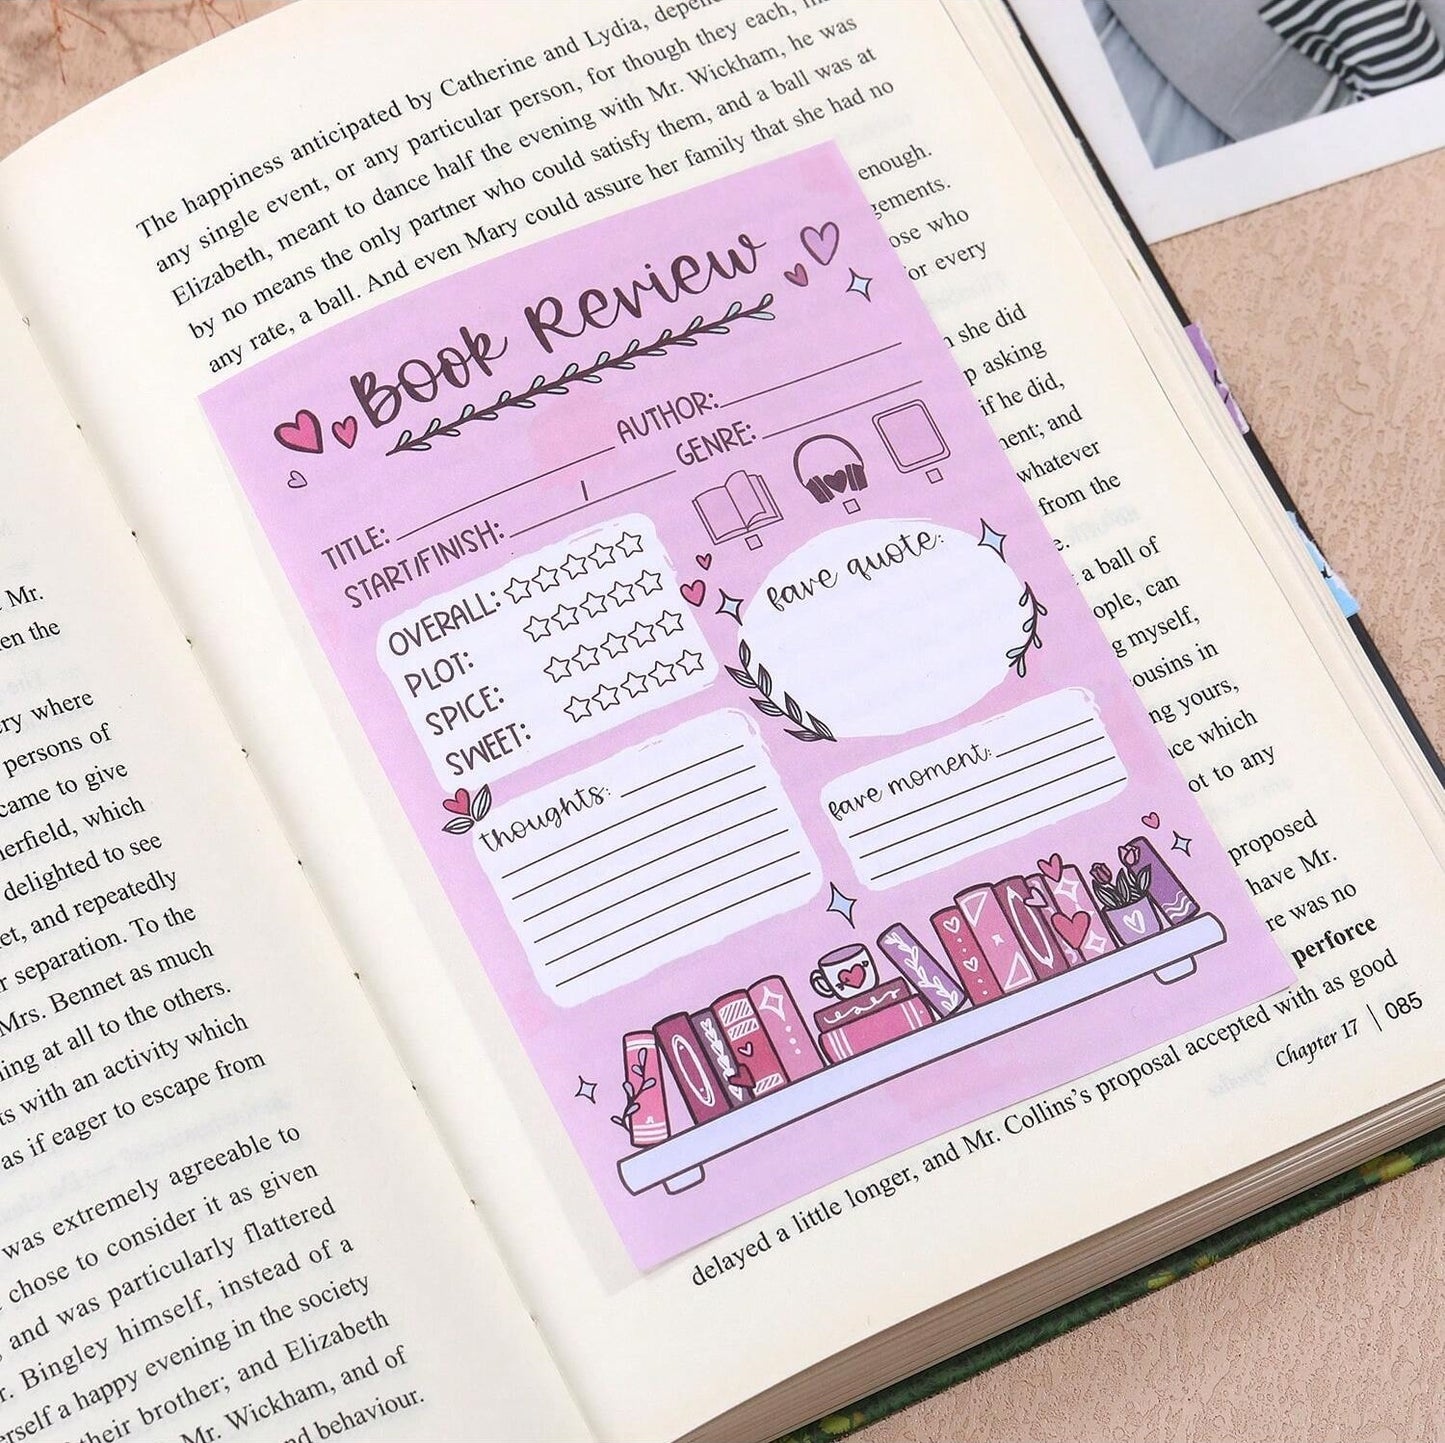 Mr.
en the
ry where
persons of
came to give
erfield, which
delighted to see
et, and repeatedly
r separation. To the
Mrs. Bennet as much
ning at all to the others.
ts with an activity which
as if eager to escape from
was extremely agreeable to
chose to consider it as given
and was particularly flattered
r. Bingley himself, instead of a
erself a happy evening in the society
their brother; and Elizabeth
Mr. Wickham, and of
nd behaviour.
The happiness anticipated by Catherine and Lydia, depen
any single event, or any particular person, for though they each,
Elizabeth, meant to dance half the evening with Mr. Wickham, he was
by no means the only partner who could satisfy them, and a ball was at
any rate, a ball. And even Mary could assure her family that she had no
enough.
gements.
ose who
for every
she did
p asking
if he did,
ent; and
whatever
from the
e.
a ball of
ople, can
g myself,
ousins in
ng yours,
ce which
ot to any
proposed
have Mr.
re was no
perforce
delayed a little longer, and Mr. Collins's proposal accepted with as good
Chapter 17 | 085
Book Review
TITLE: AUTHOR:
START/FINISH: / GENRE:
OVERALL:
PLOT:
SPICE:
SWEET:
fave quote:
thoughts:
fave moment: